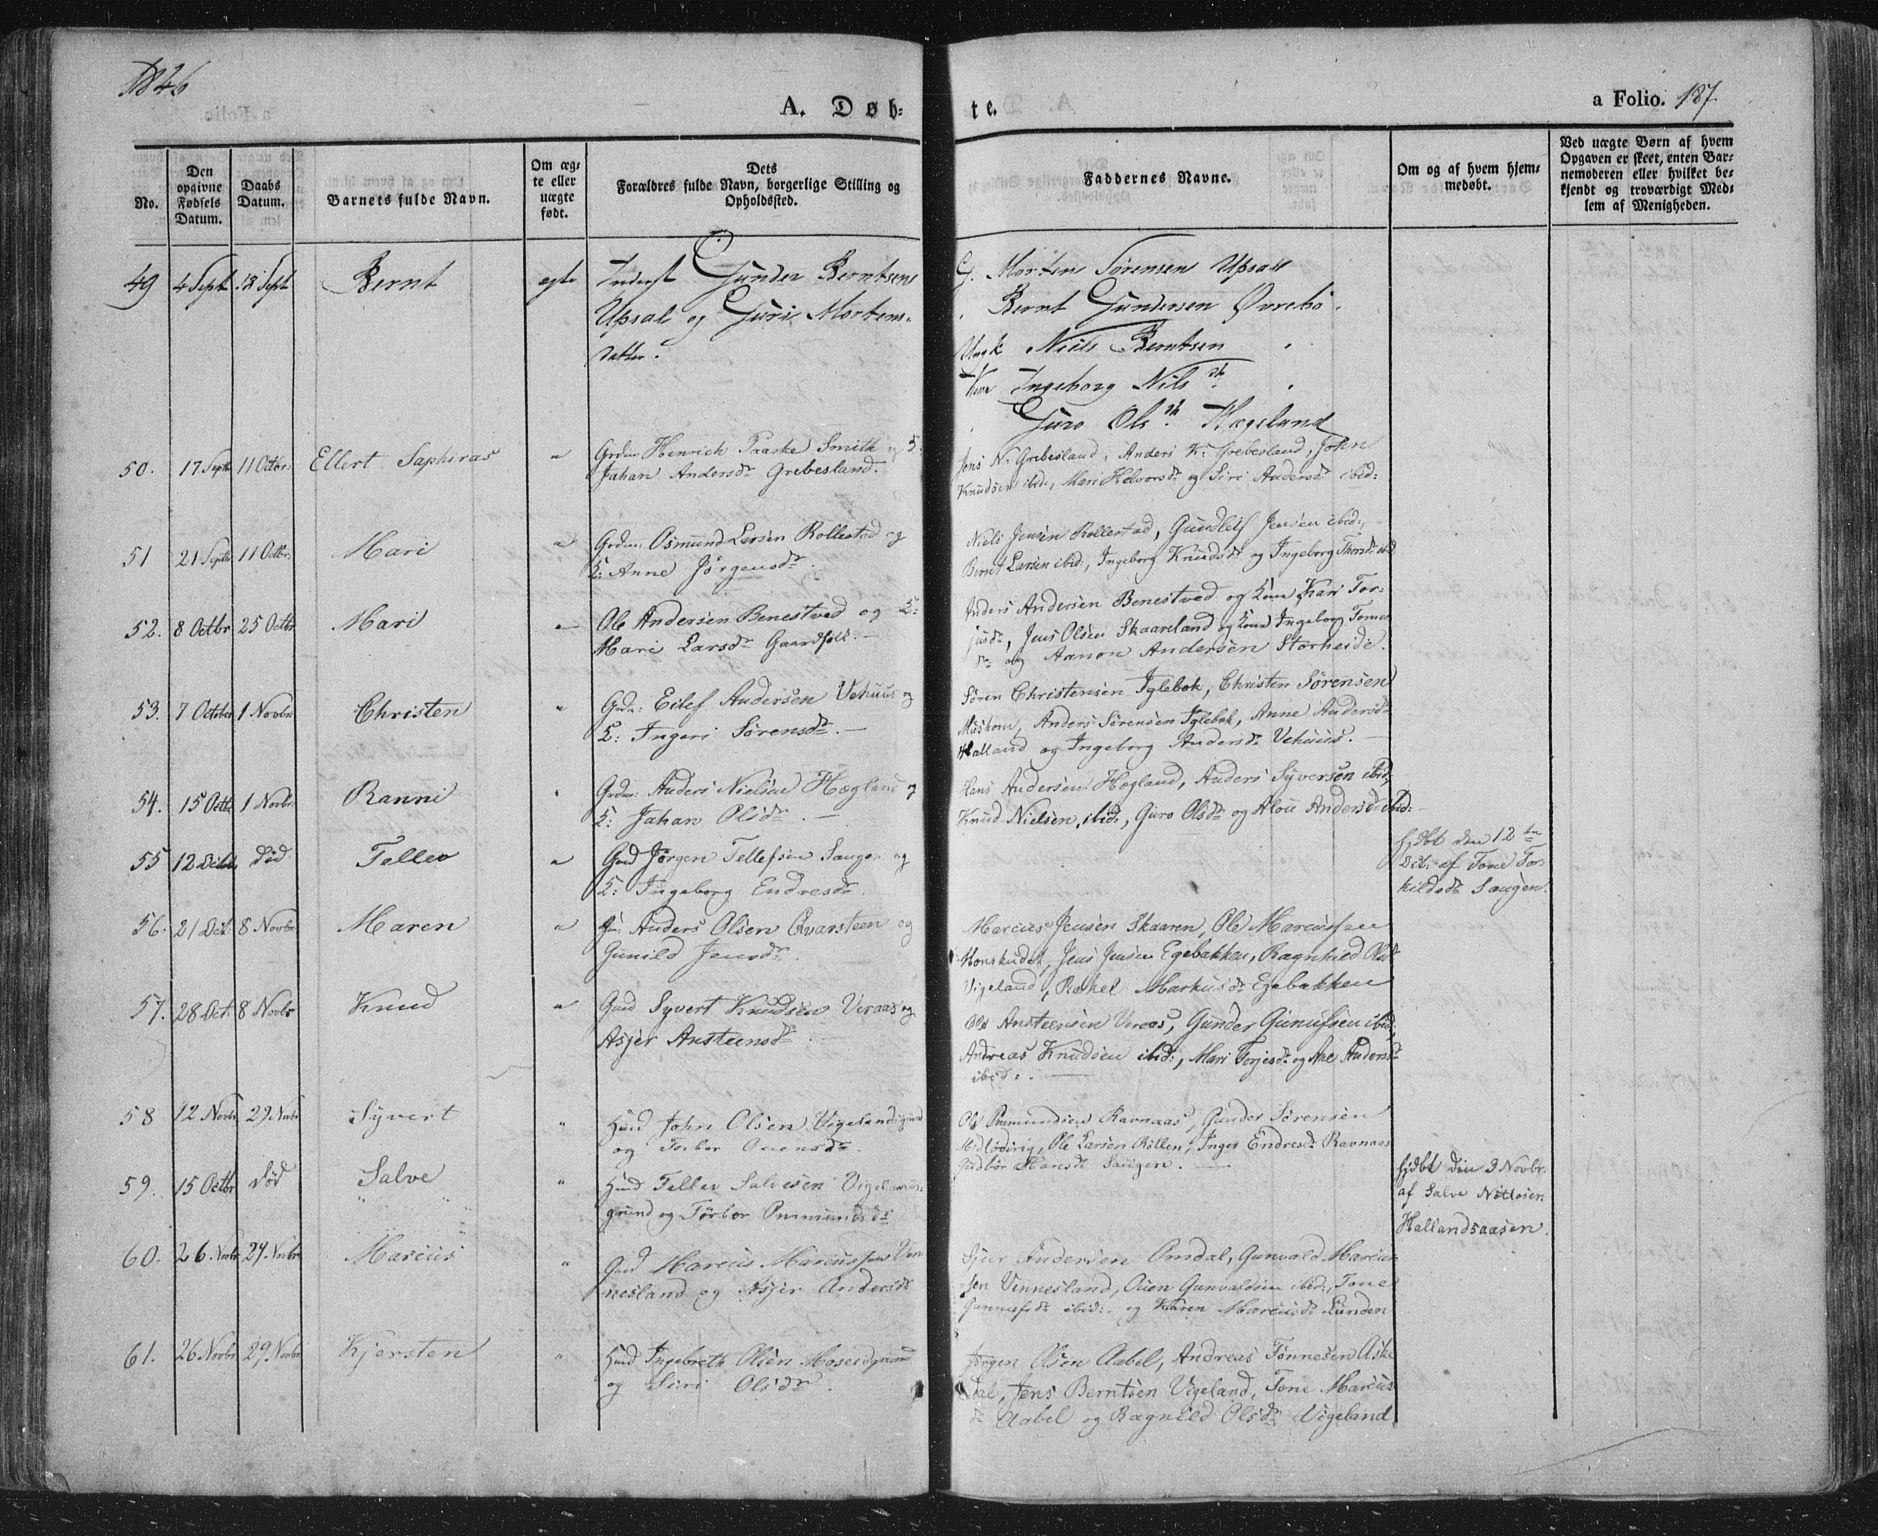 1846
A. Døb- te.
a Folio. 187.
No.
Den opgivne Fødsels Datum.
Daabs Datum.
Barnets fulde Navn.
Om ægte eller uægte født.
Dets Forældres fulde Navn, borgerlige Stilling og Opholdssted.
Faddernes Navne.
Om og af hvem hjemmedøbt.
Ved uægte Børn af hvem Opgaven er skeet, enten Barnemoderen eller hvilket bekjendt og troværdigt Medlem af Menigheden.
49 4 Sept 18 Sept Bernt egte Inderst Gunder Berntsens
Upsal og Guri Mortens-
datter.
G. Morten Sørensen Upsal
Bernt Gundersen Øvrebø.
Ungk Niels Berntsen
Kone Ingeborg Nilsdr
Guro Olsdr Hægeland
50. 17 Septb 11 Octbr: Ellert Saphiras " Grdm Henrich Paaske Smith og K:
Jahan Andersdr Grebesland.
Jens N. Grebesland, Anders K: Grebesland, John
Knudsen ibid:, Mari Helvorsdr og Siri Andersdr ibid:
51 21 Septb 11 Octbr. Mari " Grdm: Osmund Larsen Rollestad og
K: Anne Jørgensdr.
Niels Jensen Rollestad, Gundleif Jensen ibid:,
Bernt Larsen ibid:, Ingeborg Knudsdr og Ingeborg Thorsdr ibid
52. 8 Octbr 25 Octbr Mari " Ole Andersen Benestved og K:
Mari Larsdr Gaardfolk.
Anders Andersen Benestved og Kone Kari Tor-
jusdr, Jens Olsen Skaareland og Kone Ingeborg Tomes
dr og Aanon Andersen Storheide.
53. 7 October 1 Novbr Christen " Grdm: Eilef Andersen Vehuus og
K: Ingeri Sørensdr.
Søren Christensen Iglebæk, Christen Sørensen
Mushom, Anders Sørensen Iglebæk, Anne Andersdr
Halland og Ingeborg Andersdr Vehuus.
54. 15 Octbr 1 Novbr. Ranni " Grdm: Anders Nielsen Hægland og
K: Jahan Olsdr.
Hans Andersen Hægland, Anders Syversen ibid,
Knud Nielsen, ibid:, Guro Olsdr og Alou Andersdr ibid:
55 12 død Tellev " Gmd Jørgen Tellefsen Saugen og
K: Ingeborg Endresdr
hjdbt den 12te
af Tone Tor-
kildsdr Saugen.
56. 21 Oct. 8 Novbr Maren " Anders Olsen Qvarsteen og
Gunild Jensdr
Marcus Jensen Skaaren, Ole Marcussen
Jens Jensen Egebakken, Ragnhild Olsdr
Vigeland, Rakel Markusdr Egebakken
57. 28 Oct. 8 Novbr Knud " Gmd Syvert Knudsen Veraas og
Asjer Ansteensdr.
Ole Ansteensen Veraas, Gunder Gunufsen ibid,
Andreas Knudsen ibid:, Mari Torjesdr og Andersdr
ibid:.
58 12 Novbr 29 Novbr Syvert " Hmd John Olsen Vigelandsgrund
og Torbor Ouensdr.
Ole Ommundsen Ravnaas, Gunder Sørensen
Ole Larsen Røllen, Inger Endresdr Ravnaas
Gudbør Hansdr Saugen.
59. 15 Octbr død Salve " Hmd Tellev Salvesen Vigelands-
grund og Tørbor Ommundsdr
hjdbt den 3 Novbr.
af Salve
Hallandsaasen.
60. 26. Novbr 29. Novbr Marcus " Gmd Marcus Marcussen Ven
nesland og Asjer Andersdr
Sjur Andersen Omdal, Gunvald Marcus-
sen Vennesland, Ouen Gunvaldsen ibid:, Tone
Gunnufsdr ibid: og Karen Marcusdr Lunden
61. 26 Novbr 29 Novbr Kjersten " Hmd Ingebreth Olsen Moseidgrund
og Siri Olsdr.
Jørgen Olsen Aabel, Andreas Tønnesen Aske
dal, Jens Berntsen Vigeland, Tone Marcus
dr Aabel og Ragnild Olsdr Vigeland